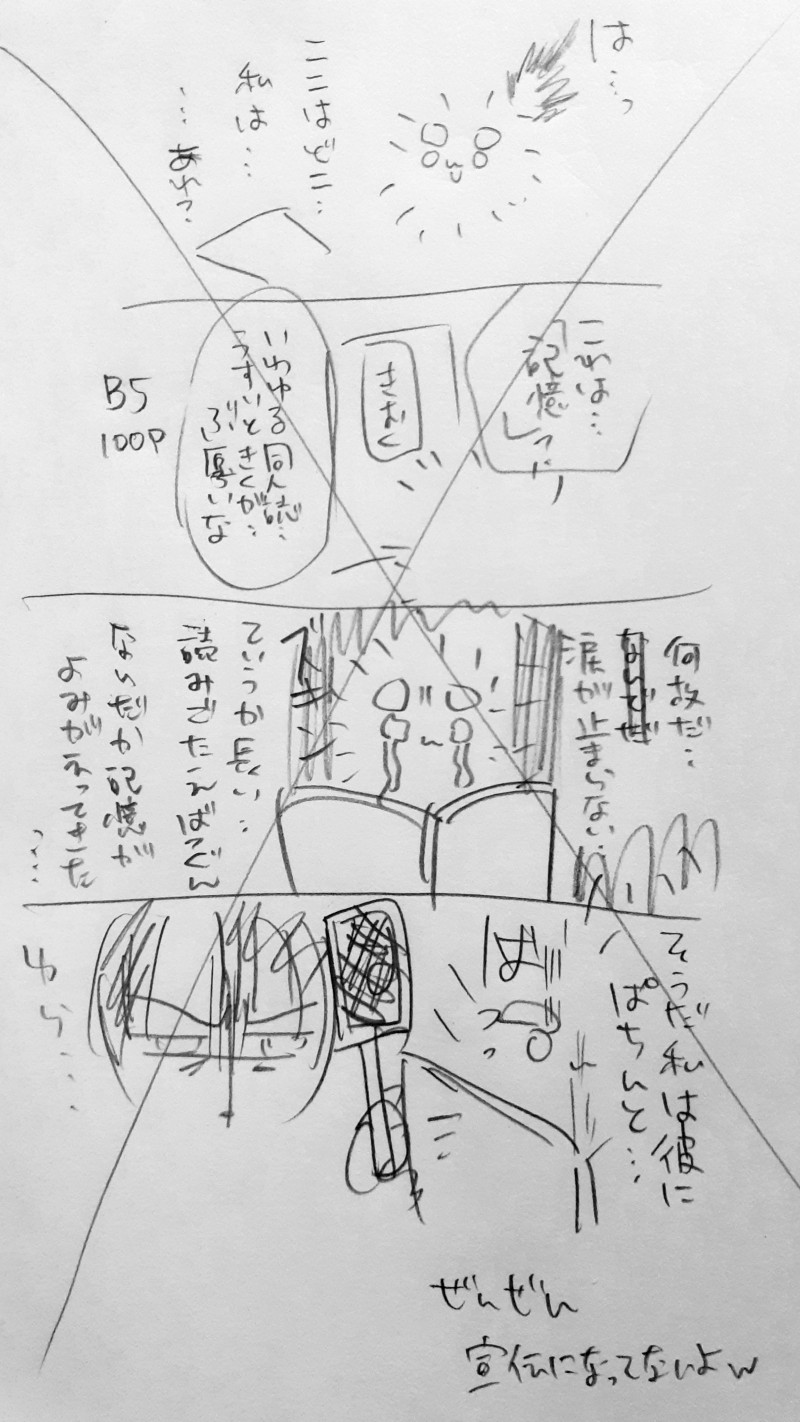 は…っ
ここはどこ…
私は…
…あれっ
これは…
「記憶」って
きおく
いわゆる同人誌…
うすいときくが…
ぶ厚いな
B5
100P
何故だ…
涙が止まらない…
ていうか長い…
読みごたえばつぐん
なんだか記憶が
よみがえってきた
……
そうだ私は彼に
ぱちんと…
ばっ
ゆら…
ぜんぜん
宣伝になってないよw